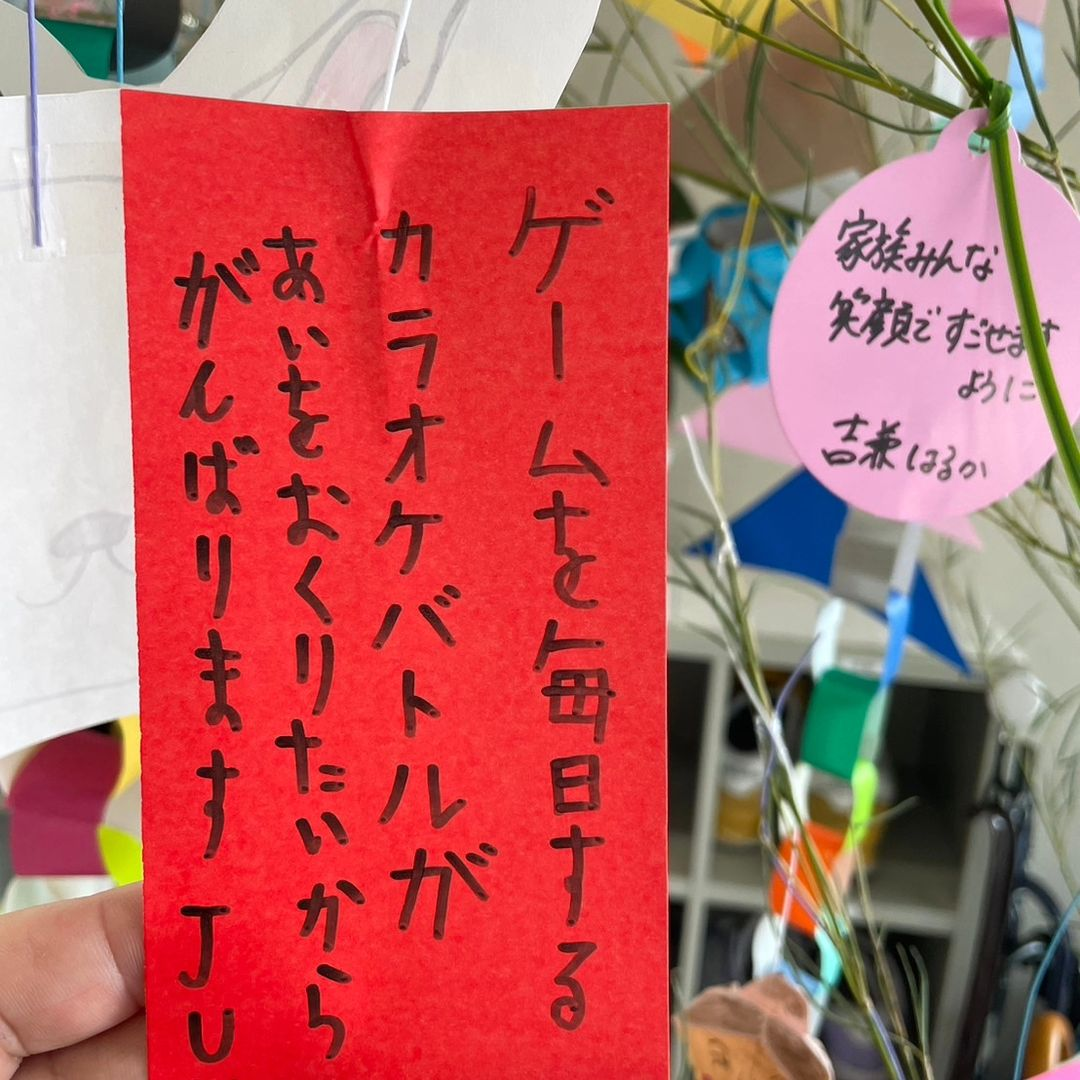 ゲームを毎日する
カラオケバトルが
あいをおくりたいから
がんばります JU
家族みんな
笑顔ですごせます
ように
吉兼はるか